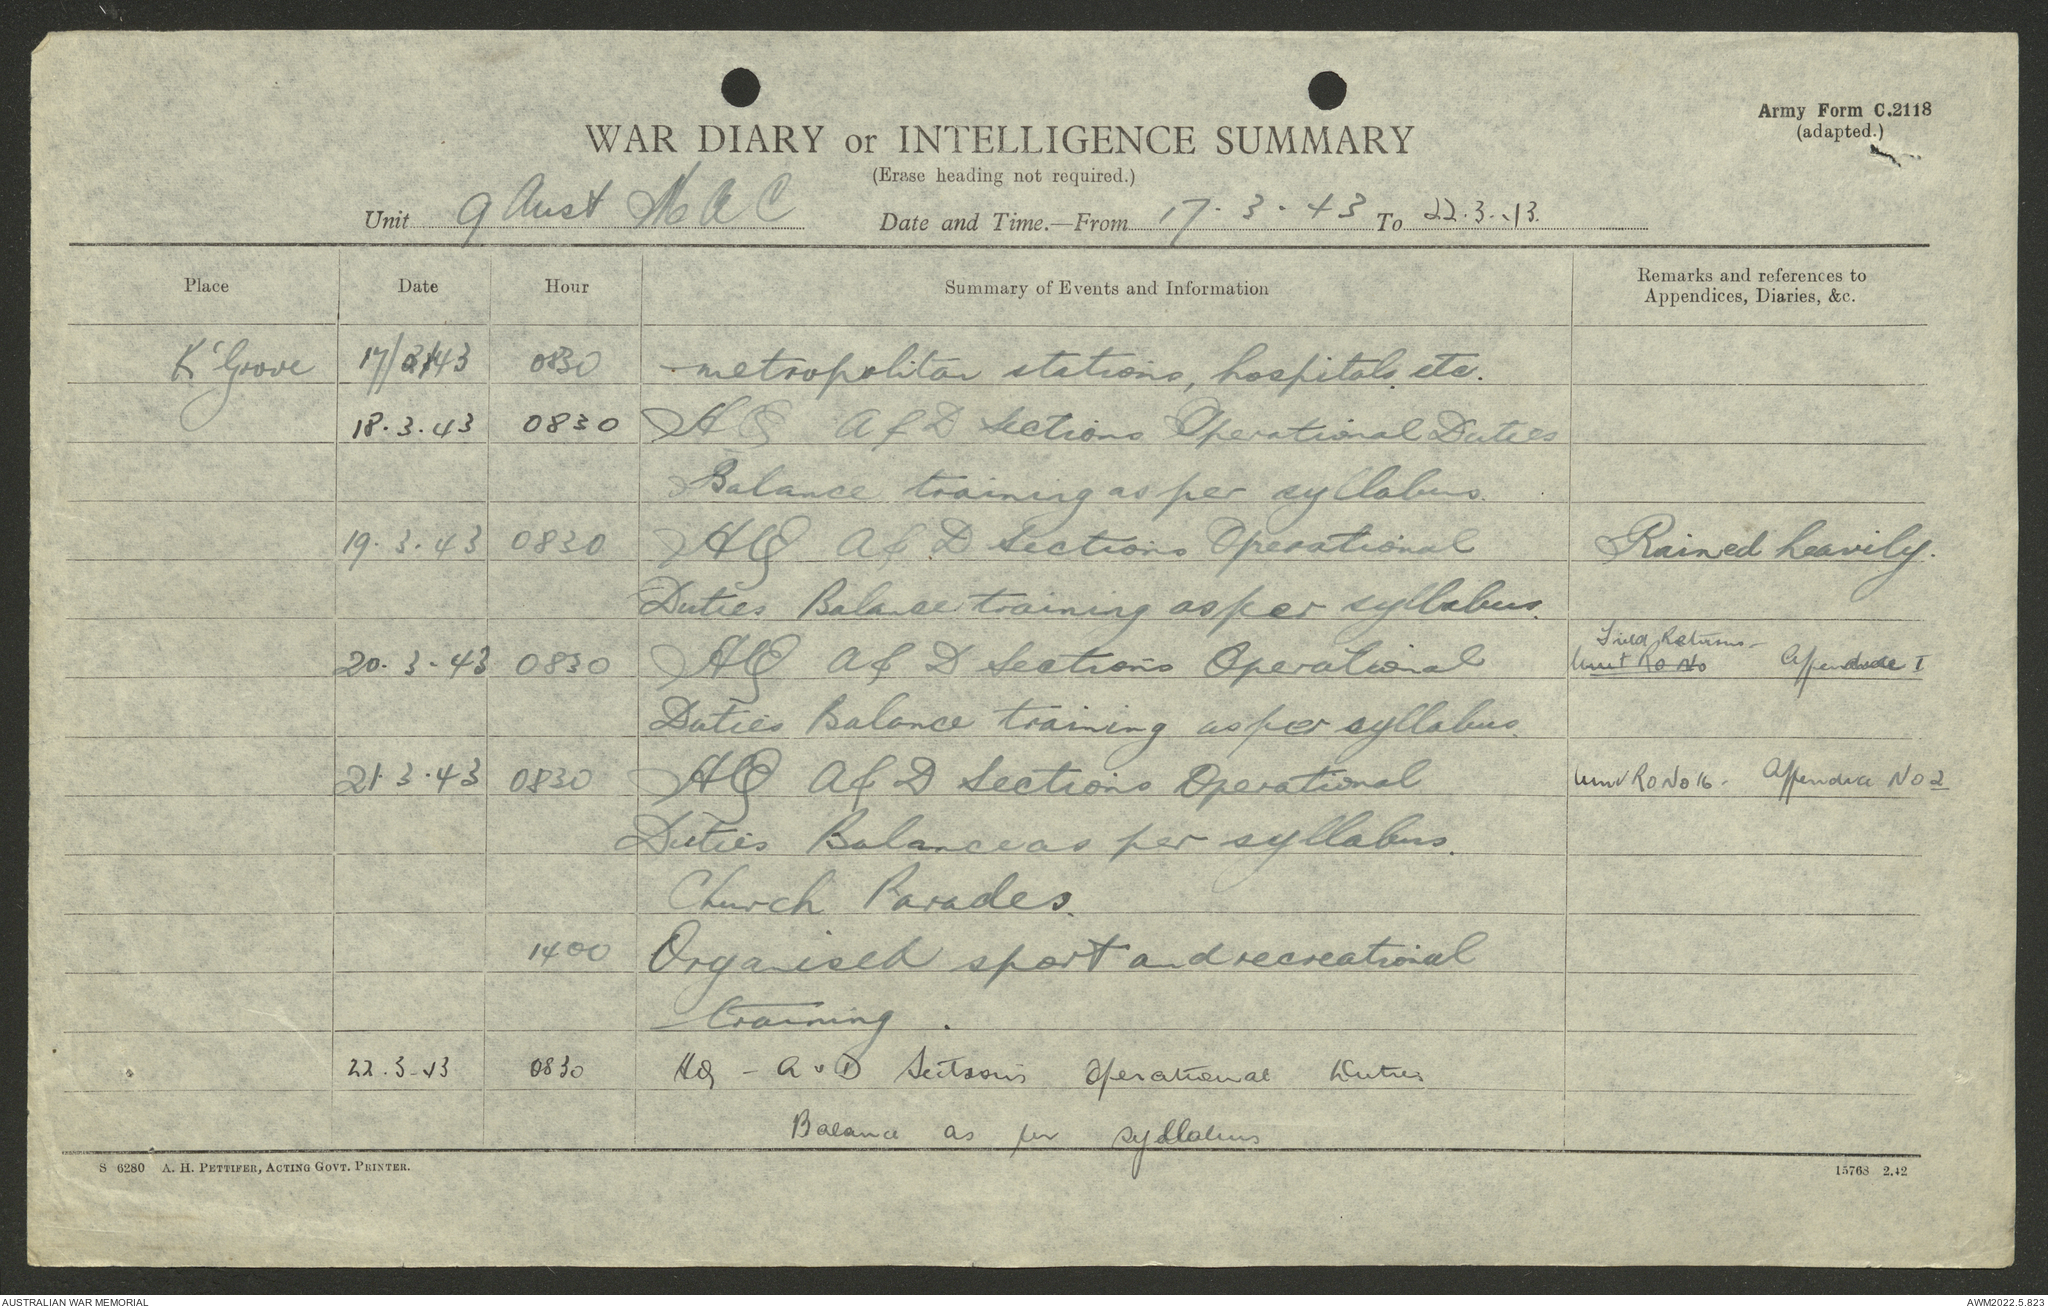 Army Form C.2118
(adapted.)
WAR DIARY or INTELLIGENCE SUMMARY
(Erase heading not required.)
Unit 9 Aust M A C Date and Time.—From 17.3.43 To 22.3.43.
Place Date Hour Summary of Events and Information Remarks and references to
Appendices, Diaries, &c.
K'Grove 17/3/43 0830 metropolitan stations, hospitals etc.
18.3.43 0830 HQ A & D Sections Operational Duties
Balance training as per syllabus.
19.3.43 0830 HQ A & D Sections Operational Rained heavily.
Duties Balance training as per syllabus.
20.3.43 0830 HQ A & D Sections Operational Field Returns -
Unit RO No Appendice I
Duties Balance training as per syllabus.
21.3.43 0830 HQ A & D Sections Operational Unit RO No 16 - Appendice No 2
Duties Balance as per syllabus.
Church Parades.
1400 Organised sport and recreational
training.
22.3.43 0830 HQ - A & D Sections Operational Duties
Balance as per syllabus
S 6280 A. H. PETTIFER, ACTING GOVT. PRINTER. 15768 2.42
AUSTRALIAN WAR MEMORIAL AWM2022.5.823